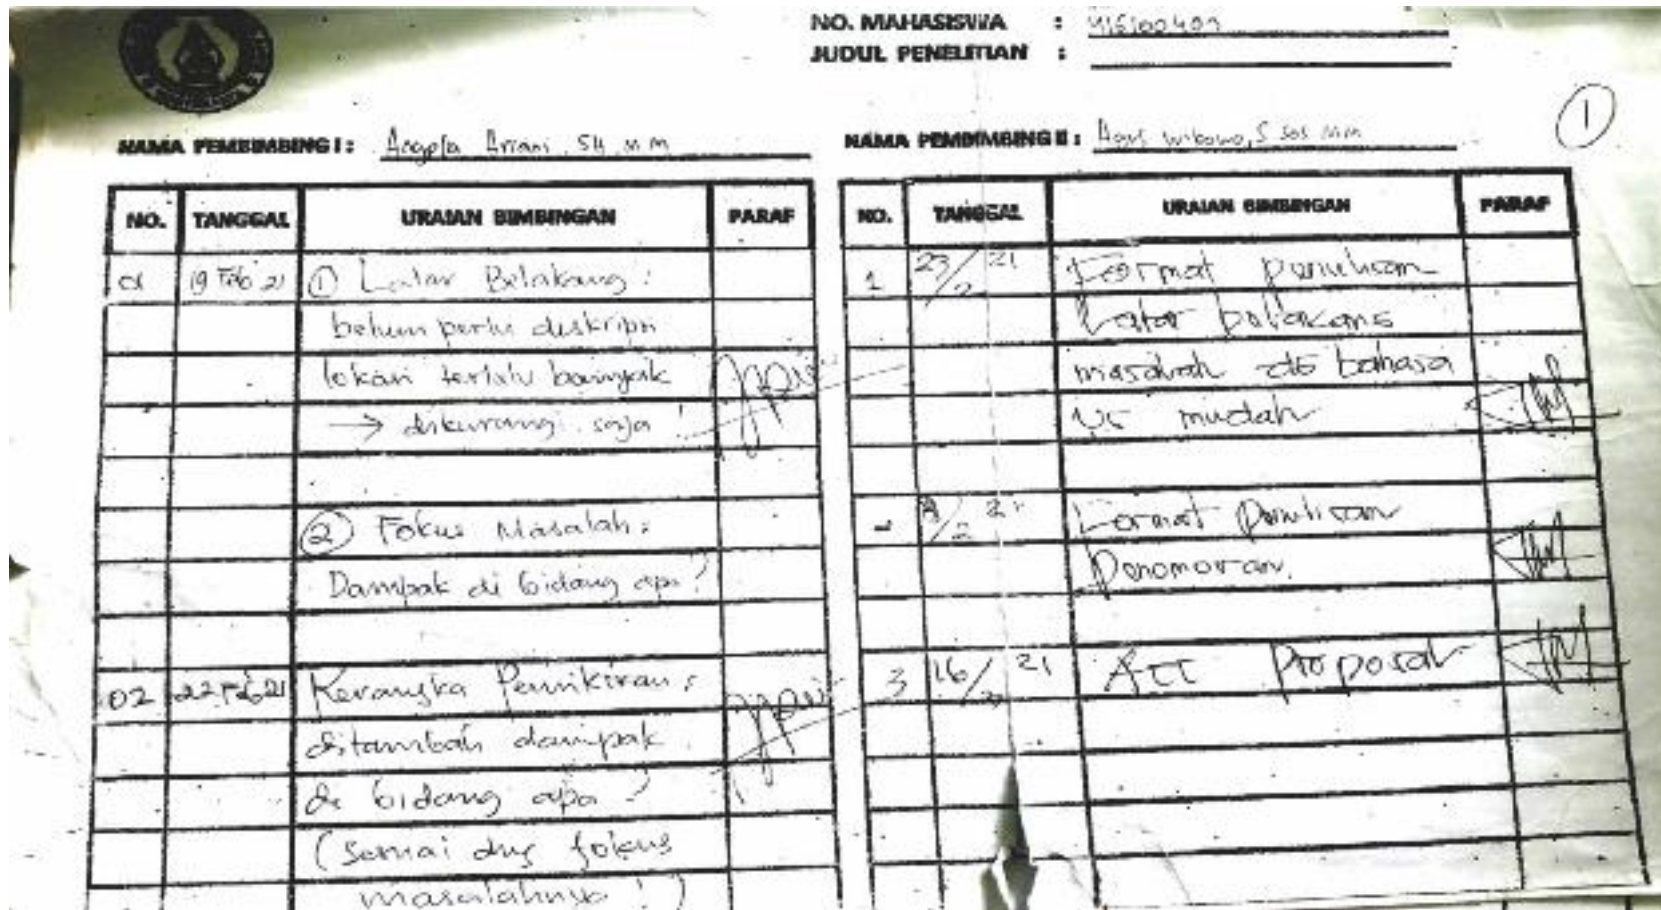 NO. MAHASISWA :
JUDUL PENELITIAN :
1
NAMA PEMBIMBING I : Arrani, SH, MM
NAMA PEMBIMBING II : Agus Wibowo, S Sos MM
NO. TANGGAL URAIAN BIMBINGAN PARAF
01 19 Feb '21 ① Latar Belakang :
belum perlu deskripsi
lokasi terlalu banyak
→ dikurangi saja !
② Fokus Masalah :
Dampak di bidang apa ?
02 22 Feb 21 Kerangka Pemikiran :
ditambah dampak
di bidang apa ?
(Sesuai dng fokus
masalahnya ! )
NO. TANGGAL URAIAN BIMBINGAN PARAF
1 23/2 21 Format penulisan
Latar belakang
masalah bahasa
yg mudah
/2 21 Format penulisan
Penomoran.
3 16/ 21 Acc Proposal